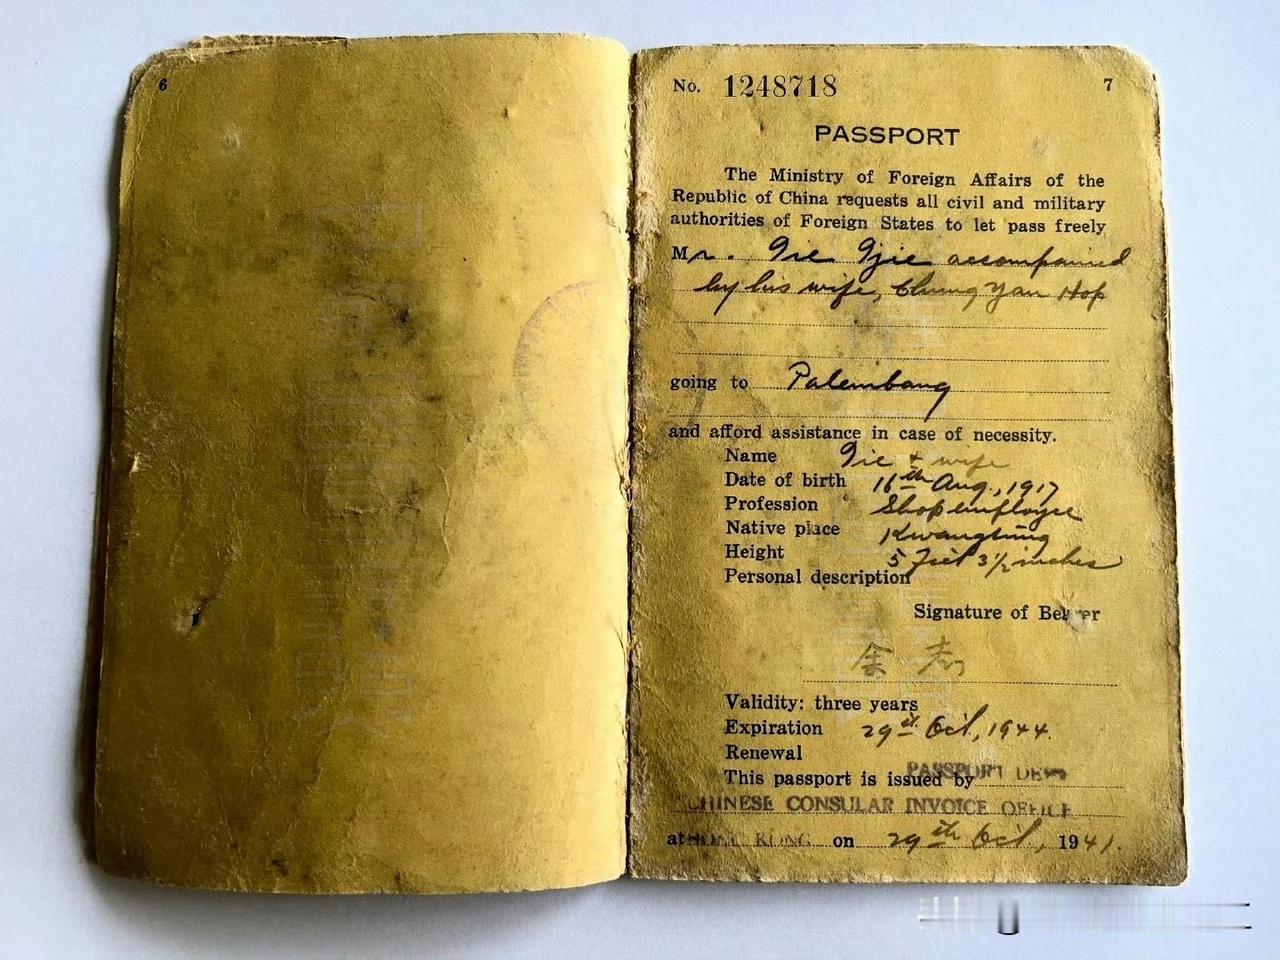 6
No. 1248718
7
PASSPORT
The Ministry of Foreign Affairs of the
Republic of China requests all civil and military
authorities of Foreign States to let pass freely
Mr. accompanied
by his wife, Chung Yau Hop
going to Palembang
and afford assistance in case of necessity.
Name & wife
Date of birth 16th Aug., 1917
Profession Shop employee
Native place Kwangtung
Height 5 feet 3½ inches
Personal description
Signature of Bearer
余
Validity: three years
Expiration 29th Oct, 1944.
Renewal
This passport is issued by PASSPORT
CHINESE CONSULAR INVOICE OFFICE
at HONG KONG on 29th Oct, 1941.